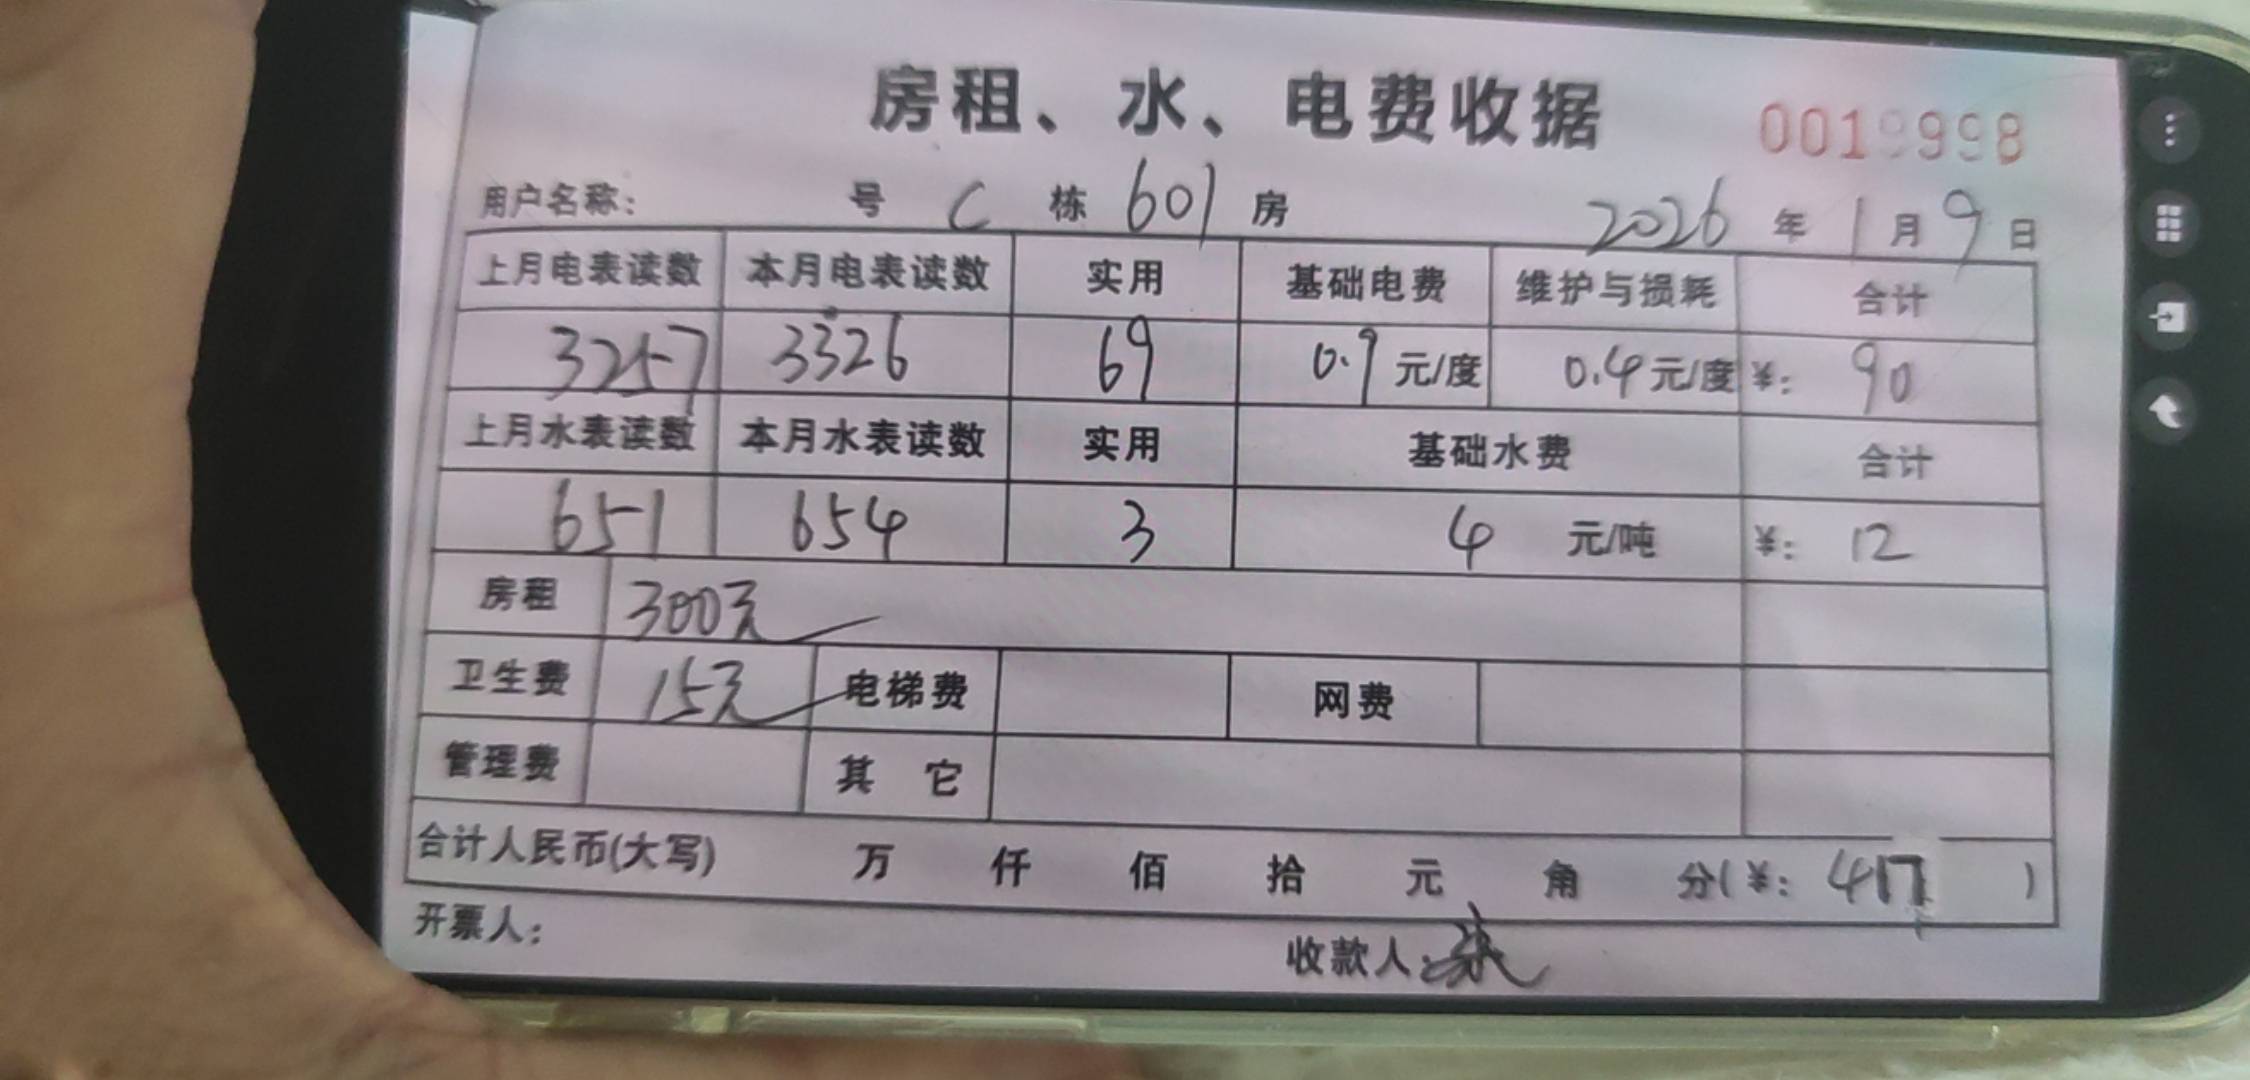 房租、水、电费收据 0019998
用户名称: 号 C 栋 601 房 2026 年 1 月 9 日
上月电表读数 本月电表读数 实用 基础电费 维护与损耗 合计
3257 3326 69 0.9 元/度 0.4 元/度 ¥: 90
上月水表读数 本月水表读数 实用 基础水费 合计
651 654 3 4 元/吨 ¥: 12
房租 300元
卫生费 15元 电梯费 网费
管理费 其 它
合计人民币(大写) 万 仟 佰 拾 元 角 分(¥: 417 )
开票人: 收款人: